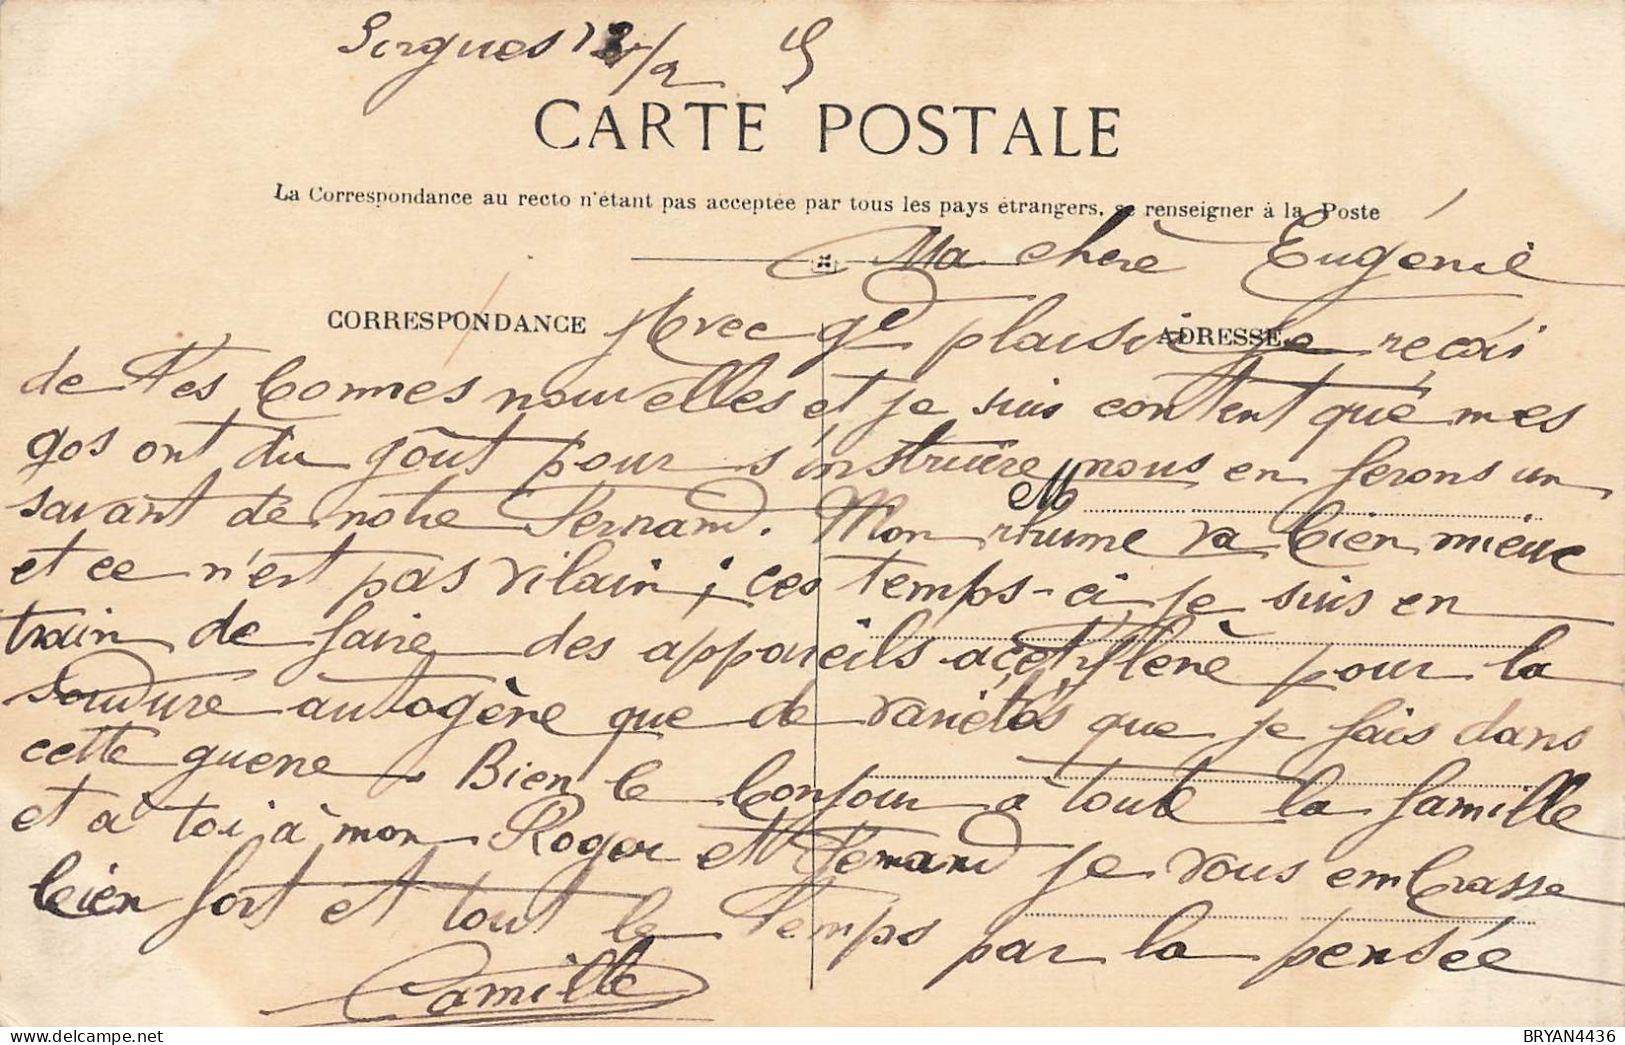 Sorgues 12/2 15
CARTE POSTALE
La Correspondance au recto n'étant pas acceptée par tous les pays étrangers, se renseigner à la Poste
Ma chère Eugénie
CORRESPONDANCE
ADRESSE
Avec gd plaisir je reçoi
de tes bonnes nouvelles et je suis content que mes
gos ont du goût pour s'instruire nous en ferons un
M
savant de notre Fernand. Mon rhume va bien mieux
et ce n'est pas vilain; ces temps-ci je suis en
train de faire des appareils acétylène pour la
soudure autogène que de variétés que je fais dans
cette guerre. Bien le bonjour à toute la famille
et à toi, à mon Roger et Fernand je vous embrasse
bien fort et tout le temps par la pensée
Camille
BRYAN4436